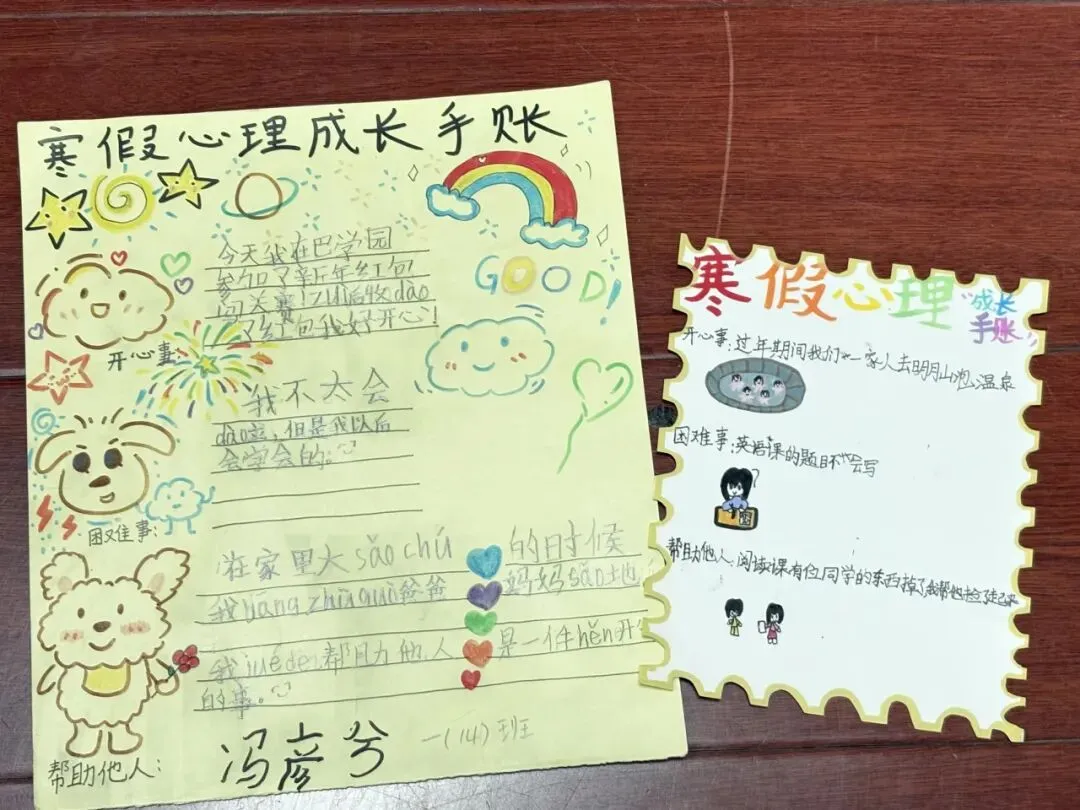 寒假心理成长手账
今天我在巴学园
参加了新年红包
闯关赛！又收dào
了红包我好开心！
GOOD!
开心事：
我不太会
dào立，但是我以后
会学会的。
困难事：
在家里大sǎo chú的时候
我 爸爸妈妈sǎo地
我jué de 帮助他人是一件hěn开
的事。
帮助他人：
冯彦兮
一(14)班
寒假心理成长
手账
开心事：过年期间我们一家人去明月山泡温泉
困难事：英语课的题目不会写
帮助他人：阅读课有位同学的东西掉了我帮他捡了起来